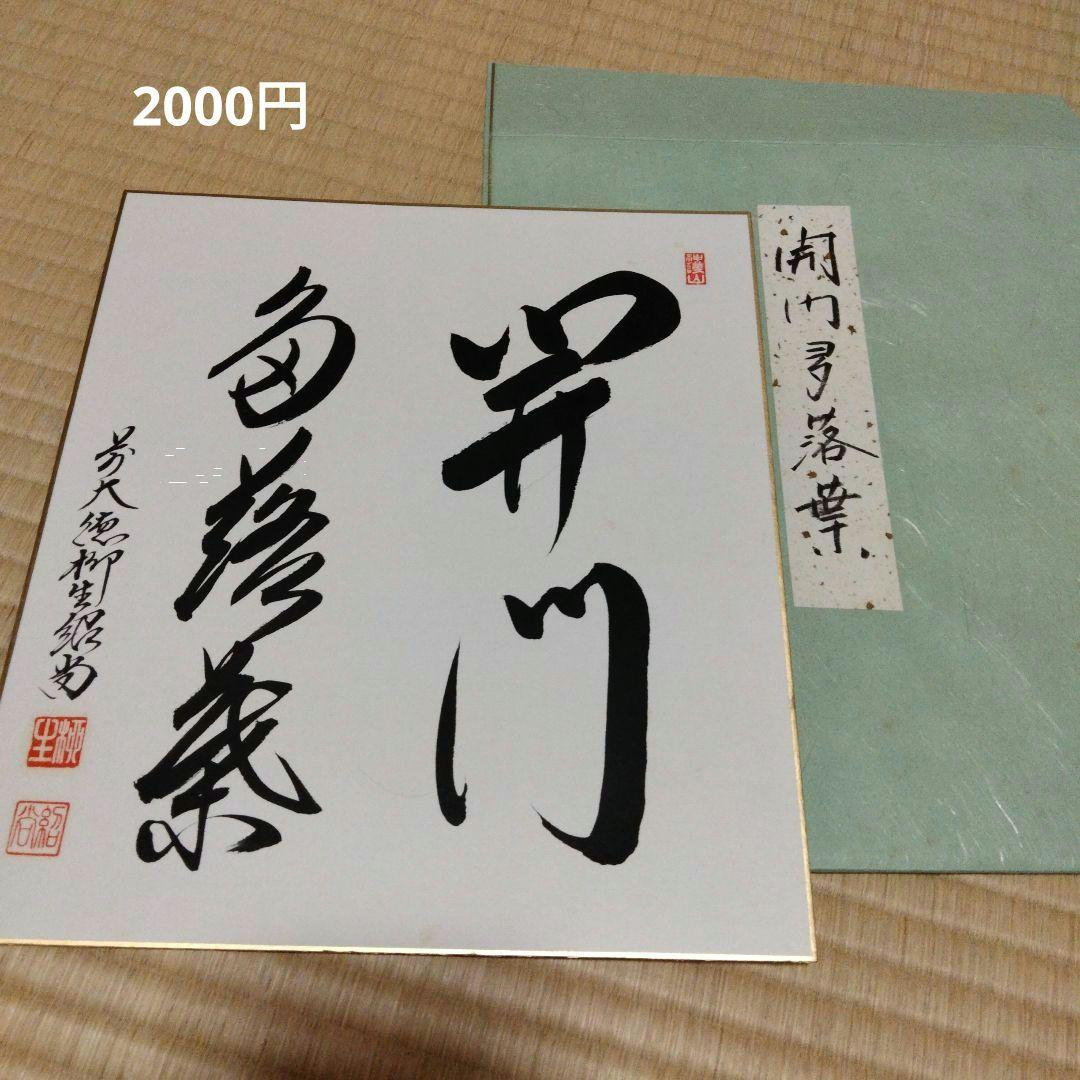 2000円
開門
多落葉
前大徳柳生紹尚
柳生
紹尚
開門多落葉